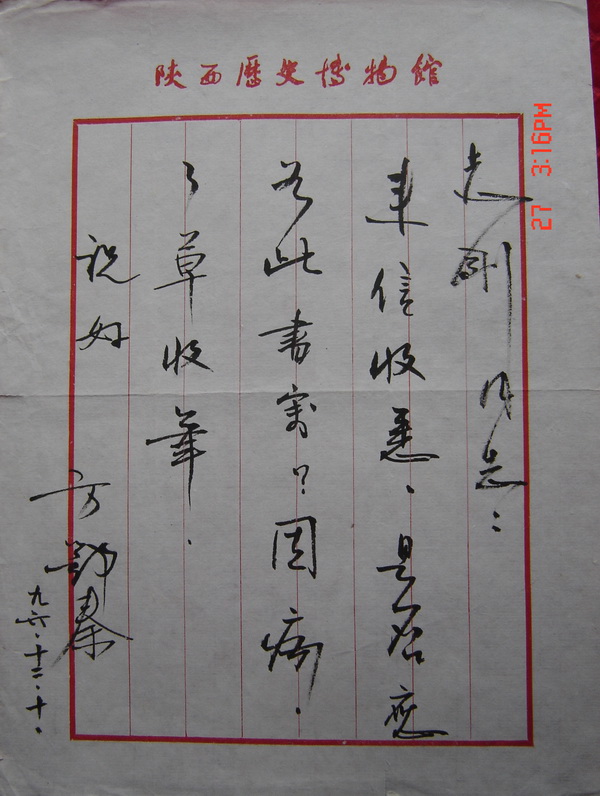 陕西歷史博物館
志刚同志：
来信收悉、是否應
若此書寫？因病.
了草收筆.
祝好
方鄂秦
九六.十二.十.
27 3:16PM